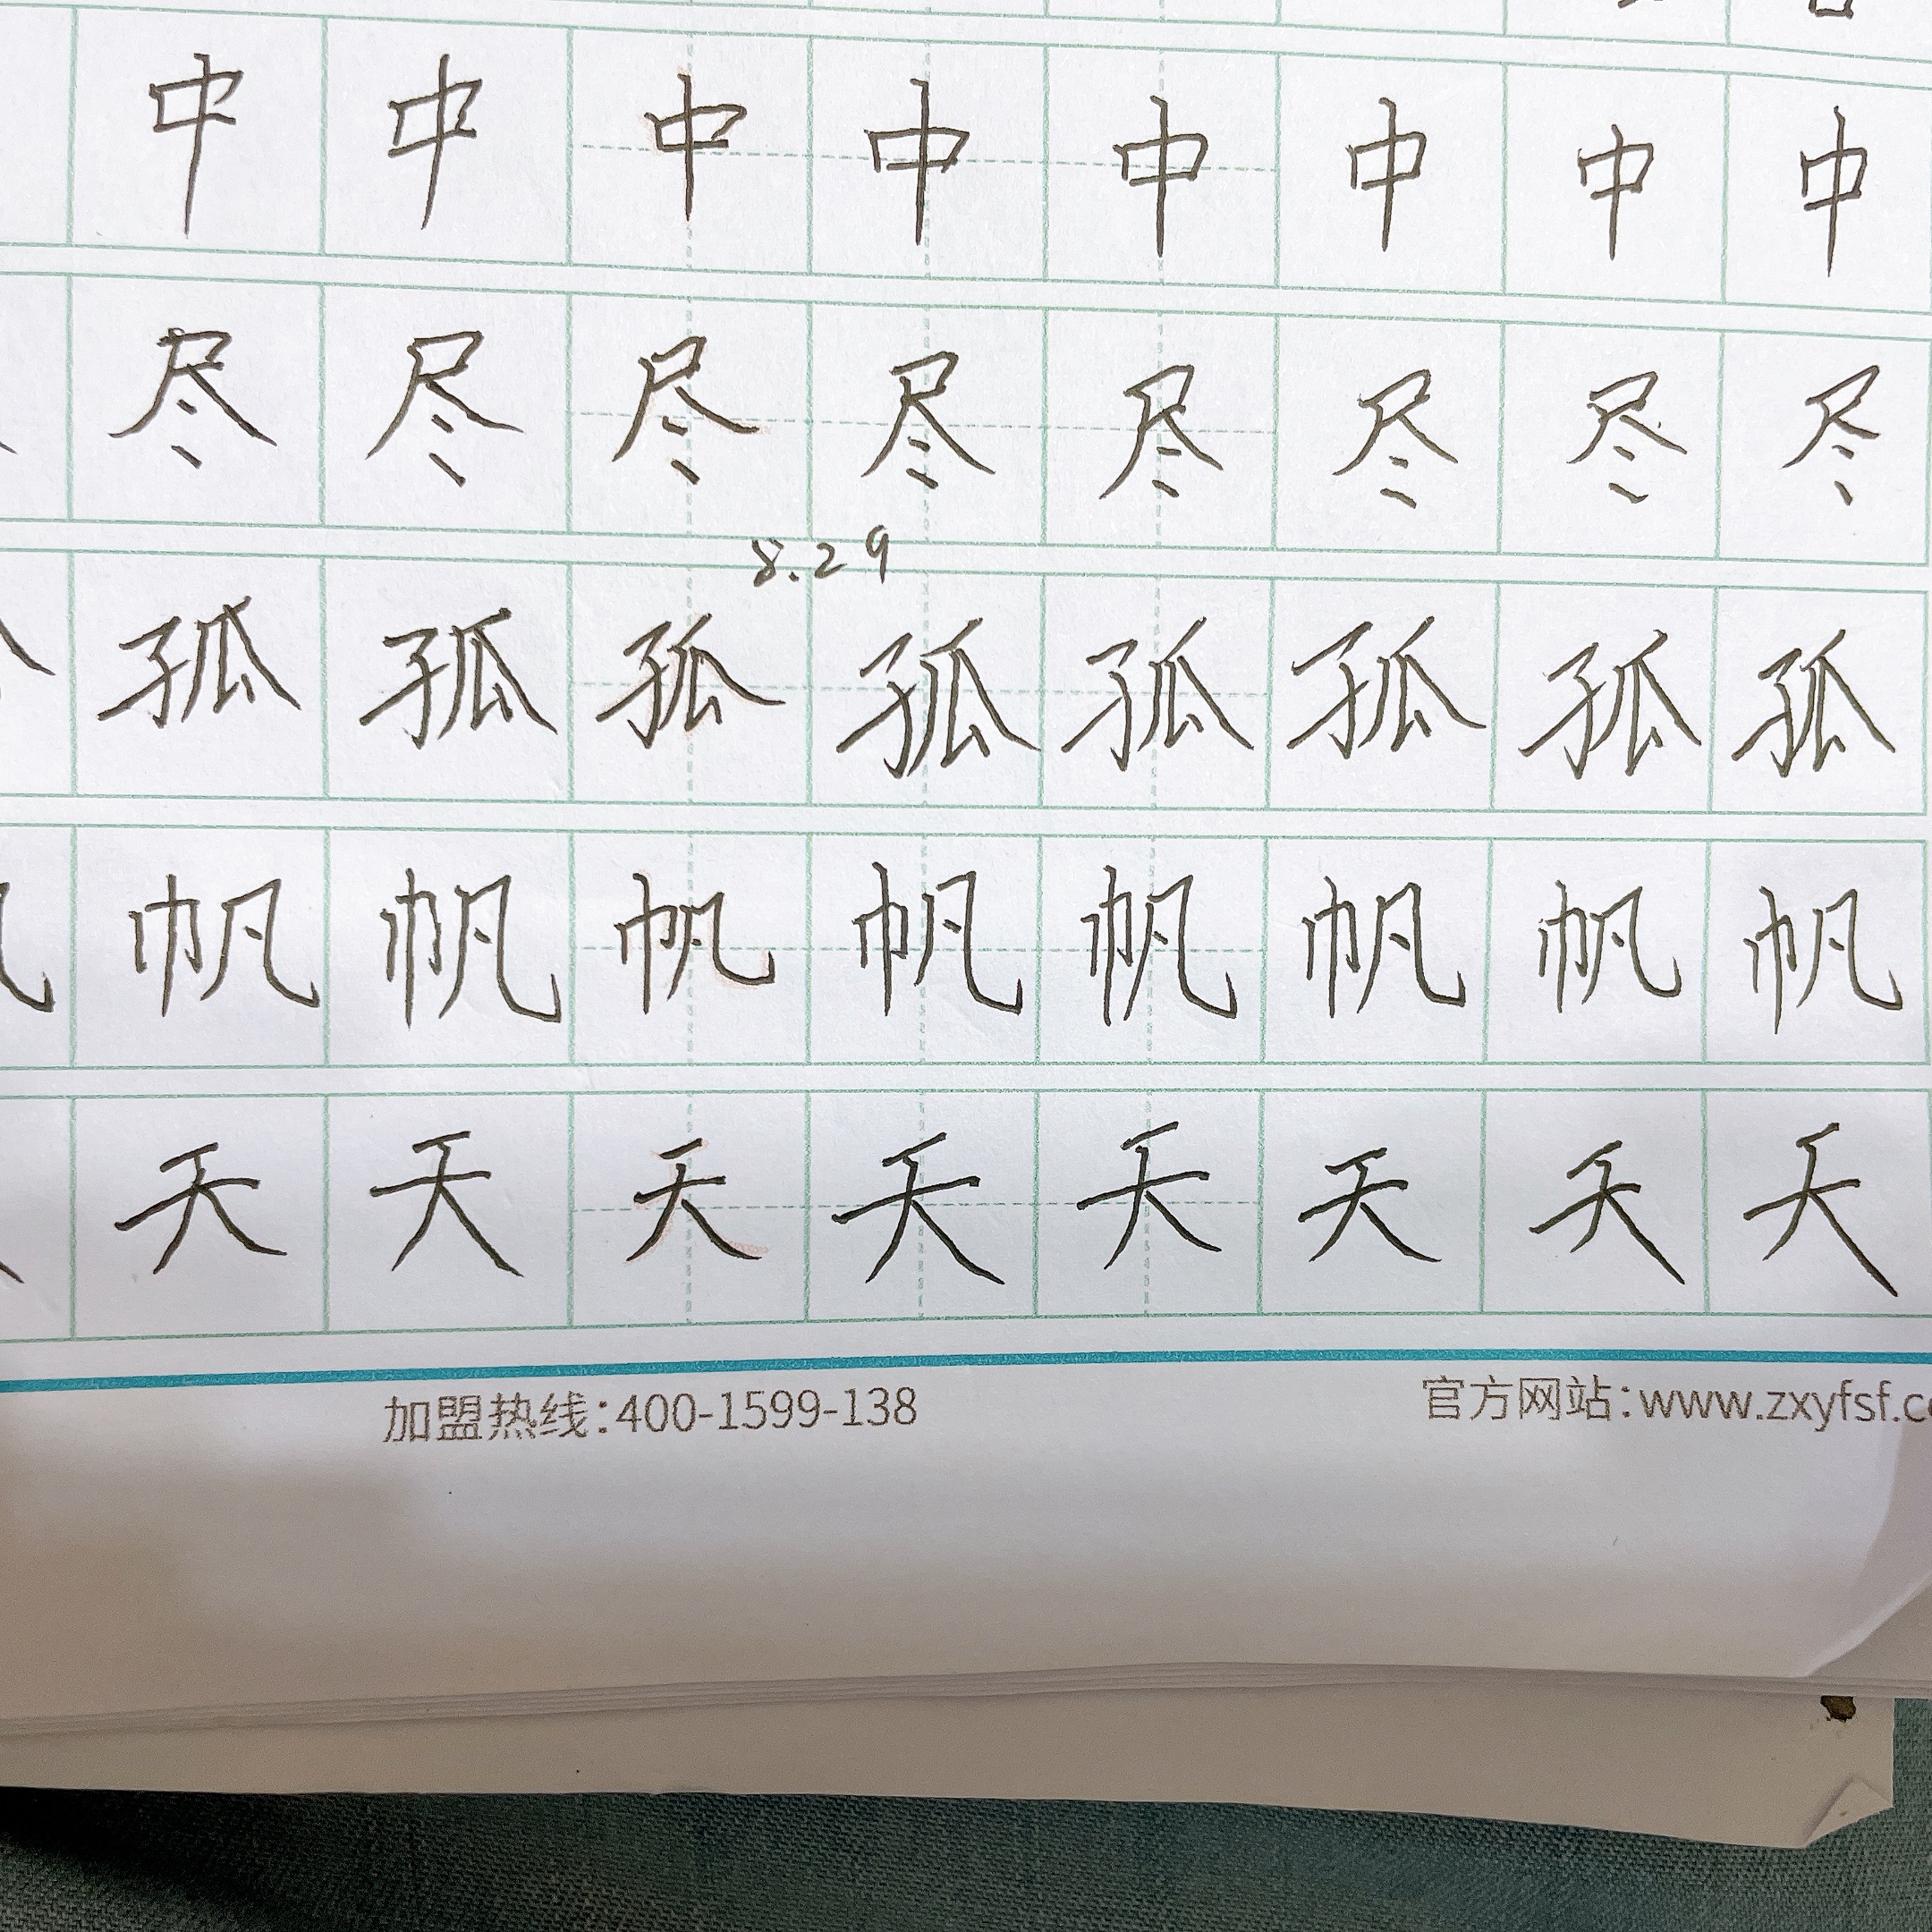 中中中中中中中中
尽尽尽尽尽尽尽尽
8.29
孤孤孤孤孤孤孤孤
帆帆帆帆帆帆帆帆
天天天天天天天天
加盟热线:400-1599-138
官方网站:www.zxyfsf.c